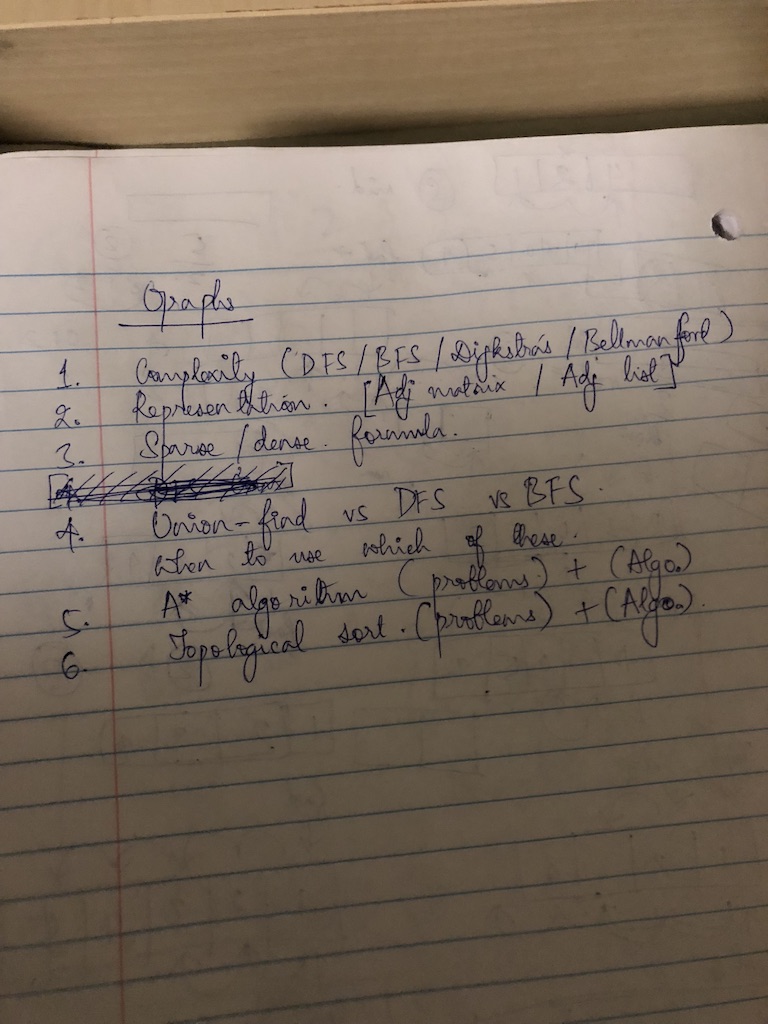 Graphs
1. Complexity (DFS / BFS / Digkstra's / Bellman ford)
2. Representation. [Adj matrix / Adj list]
3. Sparse / dense. formula.
4. Union-find vs DFS vs BFS.
when to use which of these.
5. A* algorithm (problems) + (Algo.)
6. Topological sort. (problems) + (Algo.).